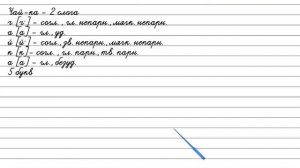 Чай-ка - 2 слога
ч [ч'] - согл., гл. непарн., мягк. непарн.
а [а] - гл., уд.
й [й'] - согл., зв. непарн., мягк. непарн.
к [к] - согл., гл. парн., тв. парн.
а [а] - гл., безуд.
5 букв